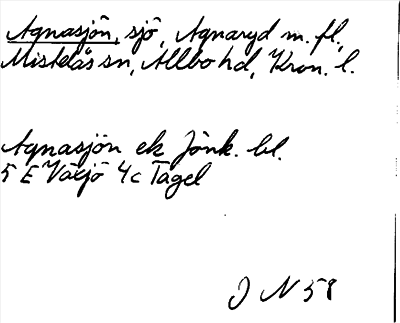 Agnasjön, sjö, Agnaryd m. fl.,
Mistelås sn, Allbo hd, Kron. l.
Agnasjön ek Jönk. bl.
5 E Växjö 4c Tagel
J N 58